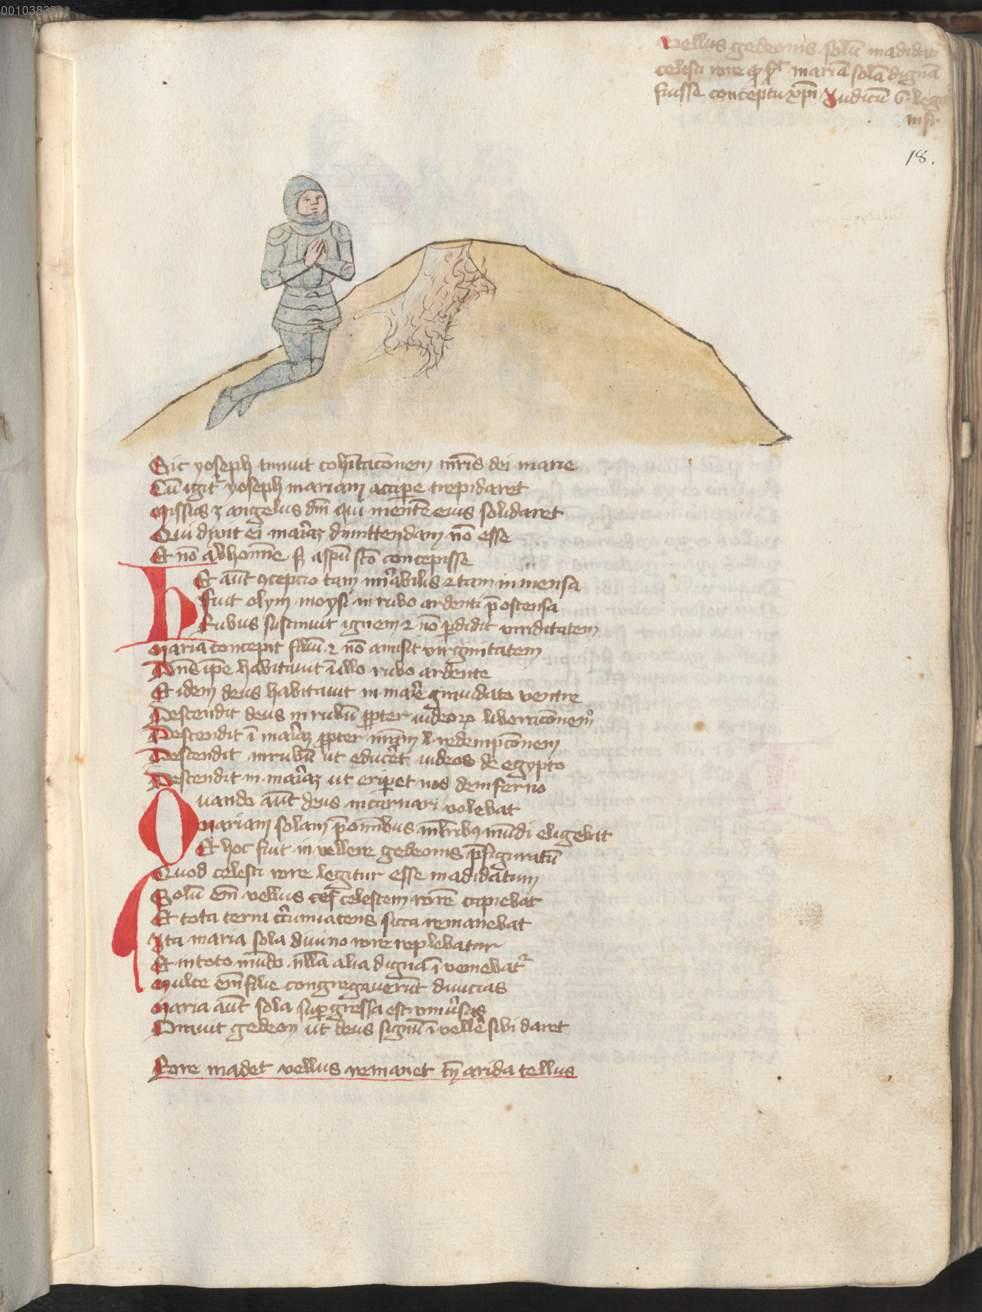 00103833
Vellus gedeonis solū madidat᷑
celesti rore mariā solā dignā
fuisse conceptu xp̄ī Judicū 6 legit᷑
18.
Sic yoseph timuit cohītacōnem mr̄is dei marie
Cū igit᷑ yoseph mariam accipe trepidaret
Missus ʒ angelus dn̄i qui mentē eius solidaret
Qui dixit ei mariā dimittendam nō esse
Et nō ab hoīne sʒ a spū scō concepisse
Hec aūt ꝯcepcio tam mirabilis ⁊ tam inmensa
Fuit olym moysi in rubo ardenti p̄ostensa
Rubus sustinuit ignem ⁊ nō ꝑdidit viriditatem
Maria concepit filiū ⁊ nō amisit virginitatem
Dn̄s ip̄e habitauit ī illo rubo ardente
Et idem deus habitauit in marie grauidato ventre
Descendit deus in rubū ꝓpter iudeoꝝ liberacōnem
Descendit ī mariā ꝓpter nr̄am redempcōnem
Descendit in rubū ut educēt iudeos de egypto
Descendit in mariā ut eriꝑet nos de inferno
Quando aūt deus incarnari volebat
Mariam solam p̄ omībus ml̄ribꝯ mūdi eligebat
Et hoc fuit in vellere gedeonis p̄figuratū
Quod celesti rore legitur esse madidatum
Solū em̄ vellus celestem rorē capiebat
Et tota terra circūiacens sicca remanebat
Ita maria sola diuino rore replebatur
Et in toto mūdo nūlla alia digna īveniebat᷑
Multe em̄ filie congregauerūt diuicias
Maria aūt sola suꝑgressa est vniūsas
Orauit gedeon ut deus signū ī vellē sibi daret
Rore madet vellus remanet tn̄ arida tellus